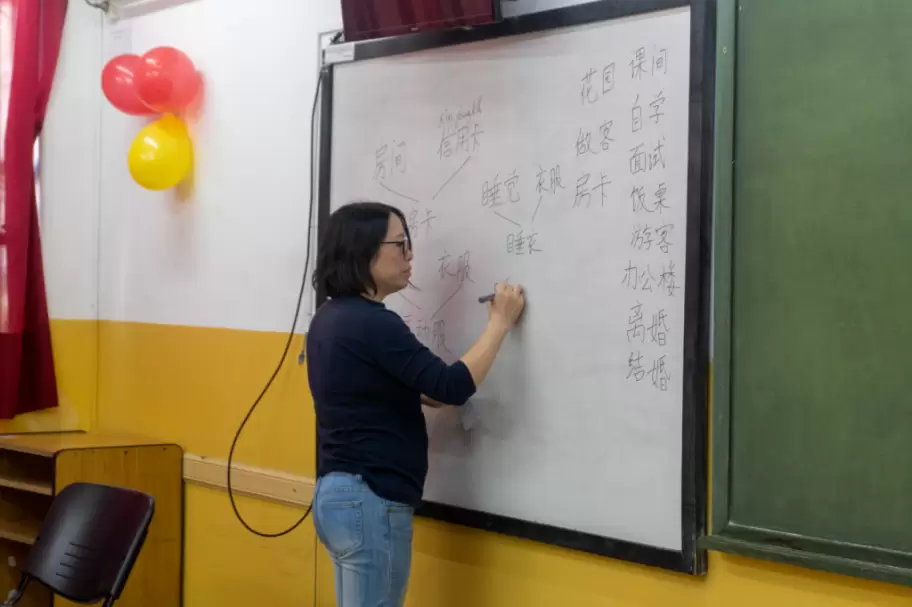 花园 课间
自学
做客 面试
房卡 饭桌
游客
办公楼
离婚
结婚
信用卡
房间
房卡
睡觉 衣服
睡衣
衣服
动服